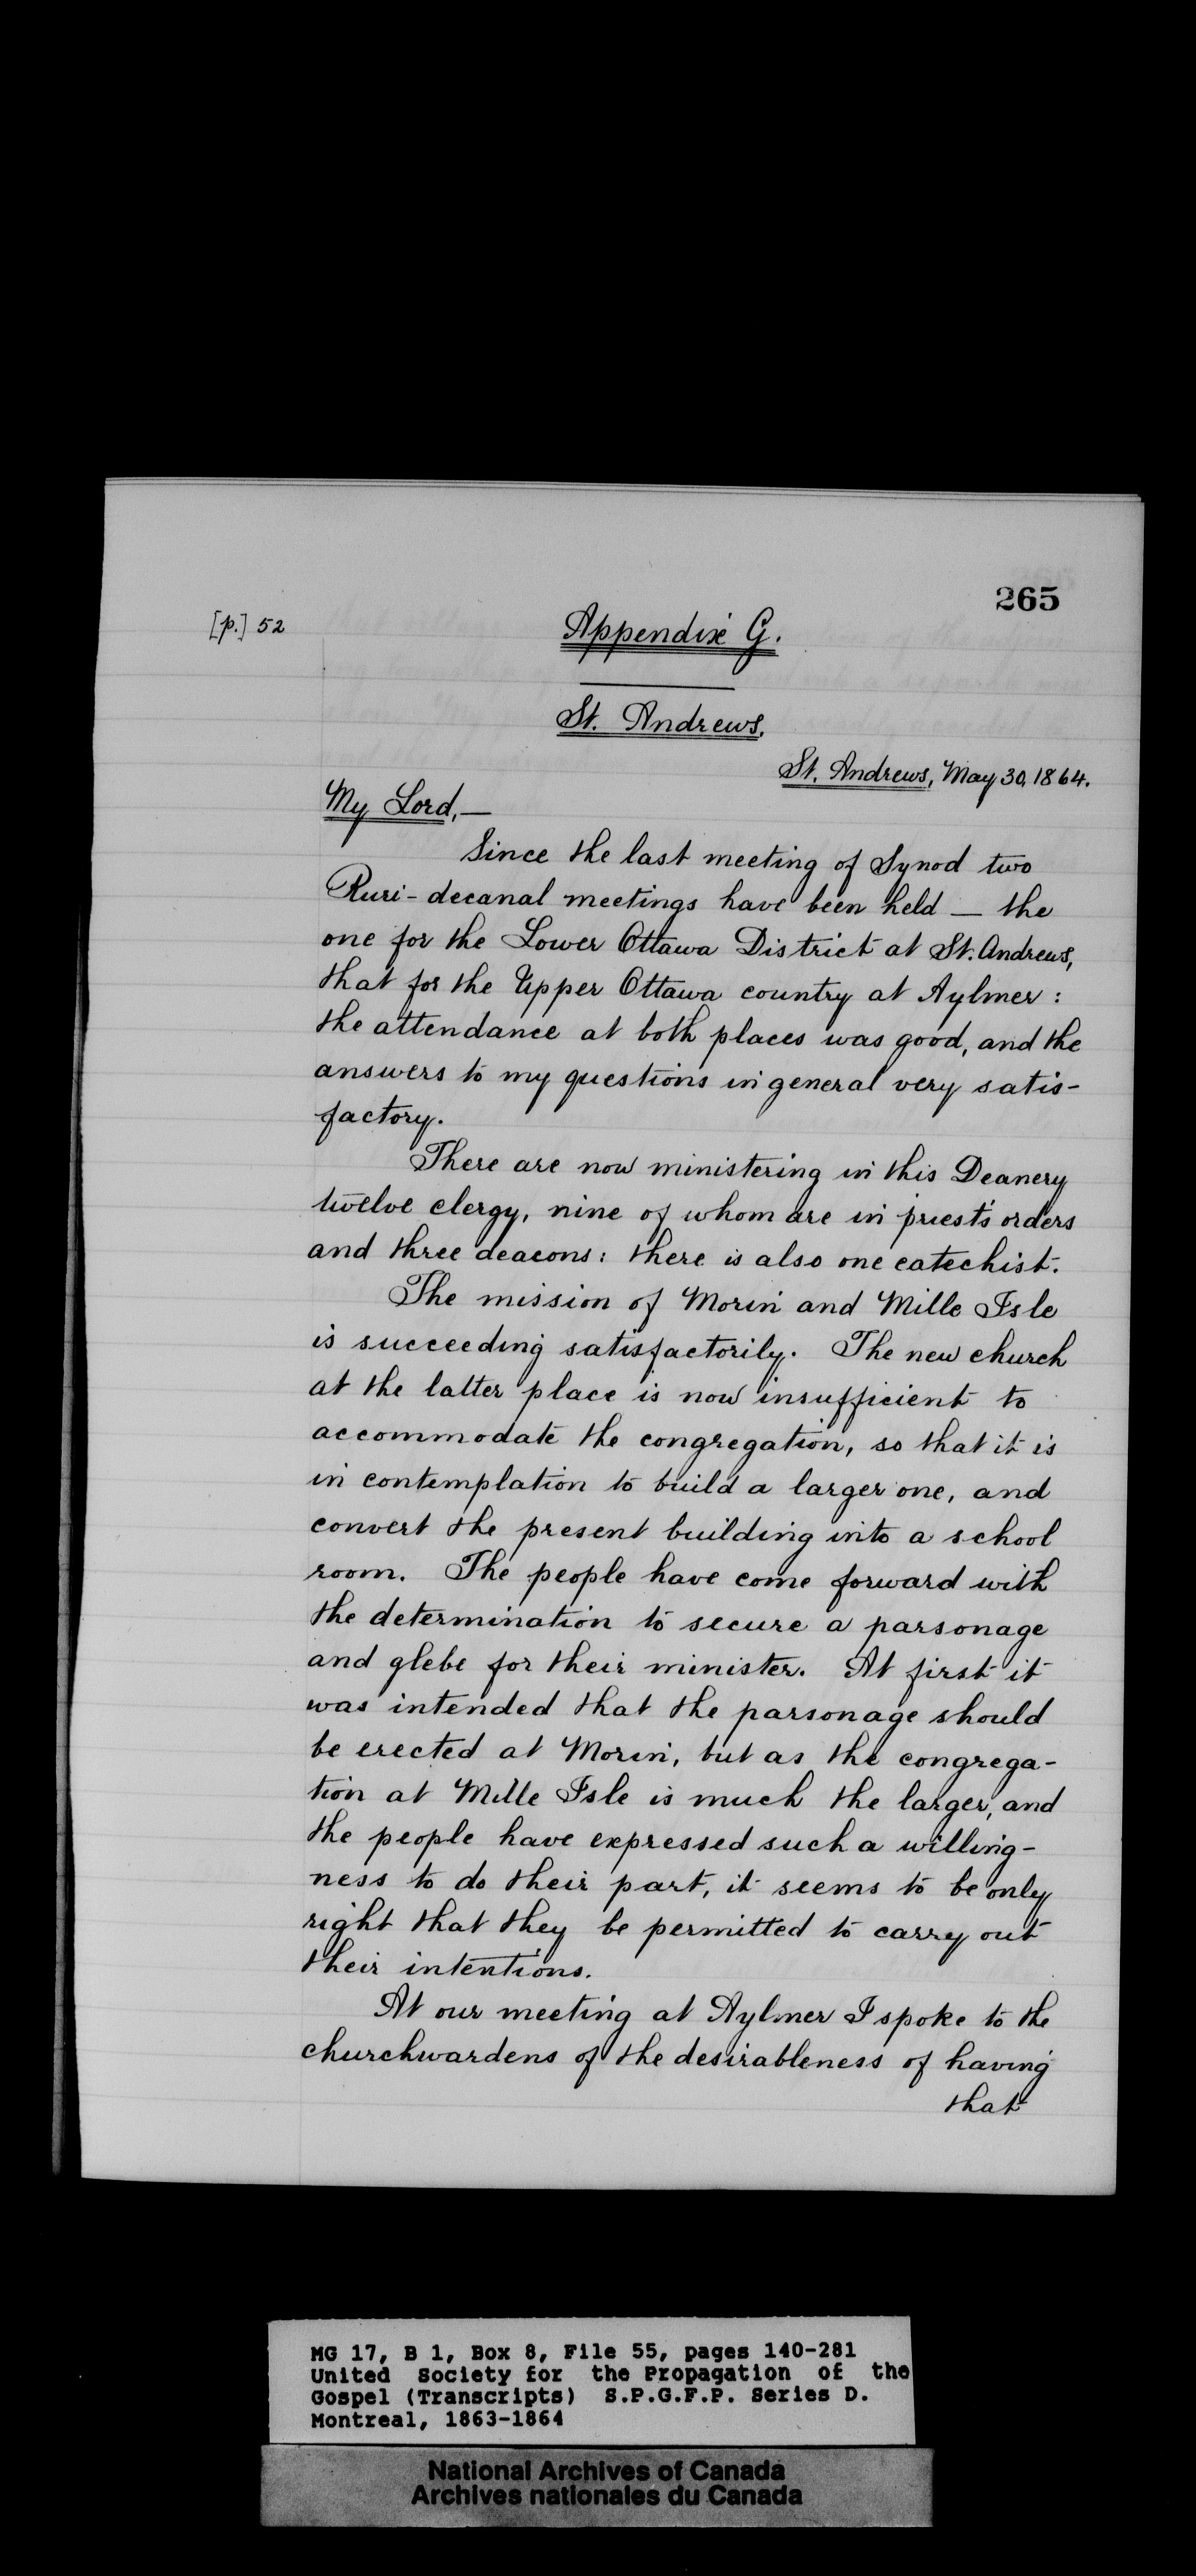 265
[p.] 52
Appendix G.
St. Andrews.
St. Andrews, May 30, 1864.
My Lord,—
Since the last meeting of Synod two
Ruri-decanal meetings have been held — the
one for the Lower Ottawa District at St. Andrews,
that for the Upper Ottawa country at Aylmer :
the attendance at both places was good, and the
answers to my questions in general very satis-
factory.
There are now ministering in this Deanery
twelve clergy, nine of whom are in priest's orders
and three deacons : there is also one catechist.
The mission of Morin and Mille Isle
is succeeding satisfactorily. The new church
at the latter place is now insufficient to
accommodate the congregation, so that it is
in contemplation to build a larger one, and
convert the present building into a school
room. The people have come forward with
the determination to secure a parsonage
and glebe for their minister. At first it
was intended that the parsonage should
be erected at Morin, but as the congrega-
tion at Mille Isle is much the larger, and
the people have expressed such a willing-
ness to do their part, it seems to be only
right that they be permitted to carry out
their intentions.
At our meeting at Aylmer I spoke to the
churchwardens of the desirableness of having
that
MG 17, B 1, Box 8, File 55, pages 140-281
United Society for the Propagation of the
Gospel (Transcripts) S.P.G.F.P. Series D.
Montreal, 1863-1864
National Archives of Canada
Archives nationales du Canada